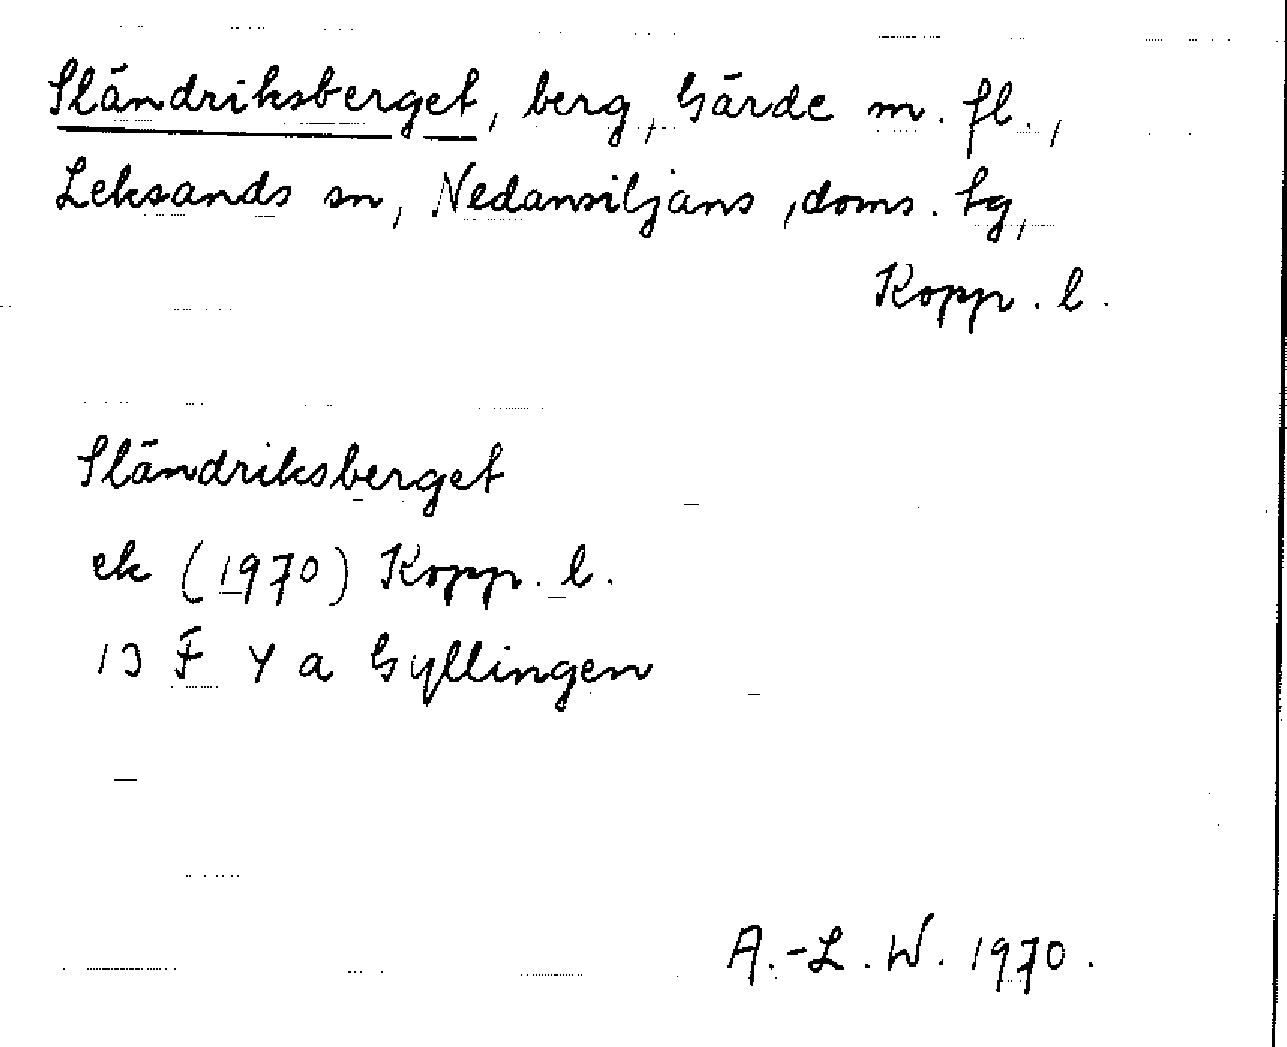 Sländriksberget, berg, Gärde m. fl.,
Leksands sn, Nedansiljans, doms. tg,
Kopp. l.
Sländriksberget
ek (1970) Kopp. l.
13 F Y a Gyllingen
A.-L. W. 1970.